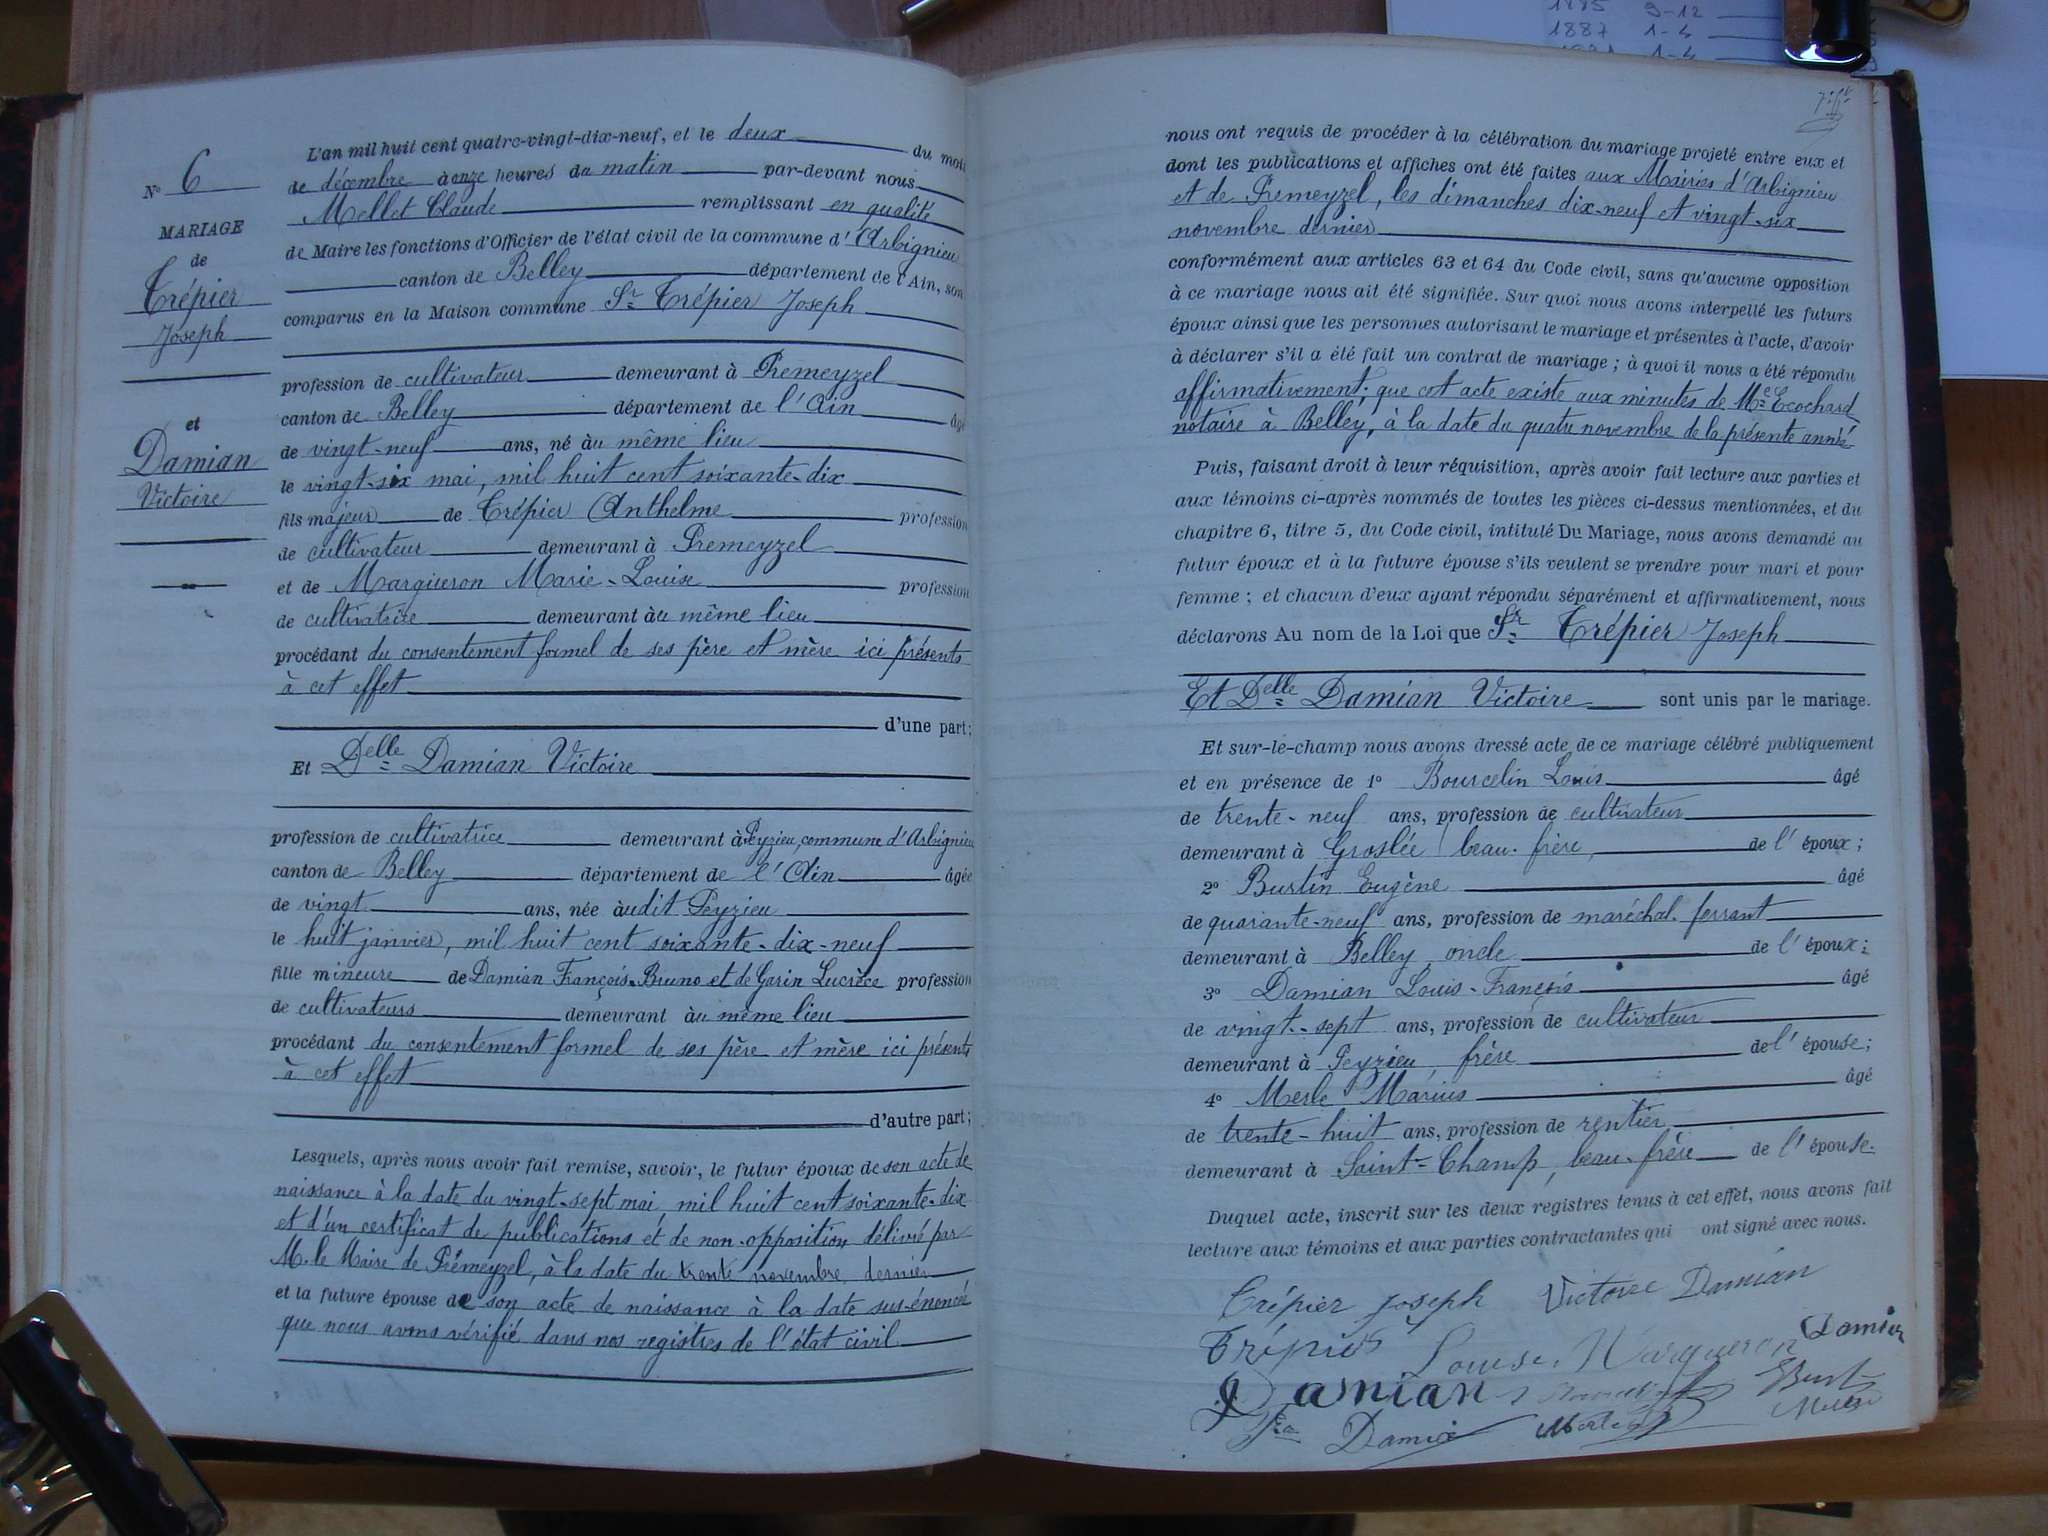 1885 9-12
1887 1-4
1-4
L'an mil huit cent quatre-vingt-dix-neuf, et le deux du mois
de décembre à onze heures du matin par-devant nous
Mellet Claude remplissant en qualité
de Maire les fonctions d'Officier de l'état civil de la commune d'Arbignieu
canton de Belley département de l'Ain, son
comparus en la Maison commune Sr Trépier Joseph
profession de cultivateur demeurant à Premeyzel
canton de Belley département de l'Ain âgé
de vingt-neuf ans, né au même lieu
le vingt-six mai, mil huit cent soixante-dix
fils majeur de Trépier Anthelme profession
de cultivateur demeurant à Premeyzel
et de Margueron Marie-Louise profession
de cultivatrice demeurant au même lieu
procédant du consentement formel de ses père et mère ici présents
à cet effet
d'une part;
Et Delle Damian Victoire
profession de cultivatrice demeurant à Peyzieu, commune d'Arbignieu
canton de Belley département de l'Ain âgée
de vingt ans, née audit Peyzieu
le huit janvier, mil huit cent soixante-dix-neuf
fille mineure de Damian François-Bruno et de Garin Lucrèce profession
de cultivateurs demeurant au même lieu
procédant du consentement formel de ses père et mère ici présents
à cet effet
d'autre part;
Lesquels, après nous avoir fait remise, savoir, le futur époux de son acte de
naissance à la date du vingt-sept mai, mil huit cent soixante-dix
et d'un certificat de publications et de non-opposition délivré par
M. le Maire de Prémeyzel, à la date du trente novembre dernier
et la future épouse de son acte de naissance à la date sus-énoncée
que nous avons vérifié dans nos registres de l'état civil
No 6
MARIAGE
de
Trépier
Joseph
et
Damian
Victoire
nous ont requis de procéder à la célébration du mariage projeté entre eux et
dont les publications et affiches ont été faites aux Mairies d'Arbignieu
et de Premeyzel, les dimanches dix-neuf et vingt-six
novembre dernier
conformément aux articles 63 et 64 du Code civil, sans qu'aucune opposition
à ce mariage nous ait été signifiée. Sur quoi nous avons interpellé les futurs
époux ainsi que les personnes autorisant le mariage et présentes à l'acte, d'avoir
à déclarer s'il a été fait un contrat de mariage; à quoi il nous a été répondu
affirmativement; que cet acte existe aux minutes de Me Ecochard
notaire à Belley, à la date du quatre novembre de la présente année
Puis, faisant droit à leur réquisition, après avoir fait lecture aux parties et
aux témoins ci-après nommés de toutes les pièces ci-dessus mentionnées, et du
chapitre 6, titre 5, du Code civil, intitulé Du Mariage, nous avons demandé au
futur époux et à la future épouse s'ils veulent se prendre pour mari et pour
femme; et chacun d'eux ayant répondu séparément et affirmativement, nous
déclarons Au nom de la Loi que Sr Trépier Joseph
Et Delle Damian Victoire sont unis par le mariage.
Et sur-le-champ nous avons dressé acte de ce mariage célébré publiquement
et en présence de 1o Bourcelin Louis âgé
de trente-neuf ans, profession de cultivateur
demeurant à Groslée beau-frère de l'époux;
2o Burtin Eugène âgé
de quarante-neuf ans, profession de maréchal-ferrant
demeurant à Belley, oncle de l'époux;
3o Damian Louis-François âgé
de vingt-sept ans, profession de cultivateur
demeurant à Peyzieu, frère de l'épouse;
4o Merle Marius âgé
de trente-huit ans, profession de rentier
demeurant à Saint-Champ, beau-frère de l'épouse.
Duquel acte, inscrit sur les deux registres tenus à cet effet, nous avons fait
lecture aux témoins et aux parties contractantes qui ont signé avec nous.
Trépier Joseph Victoire Damian
Trépier Louise Margueron Damian
Damian